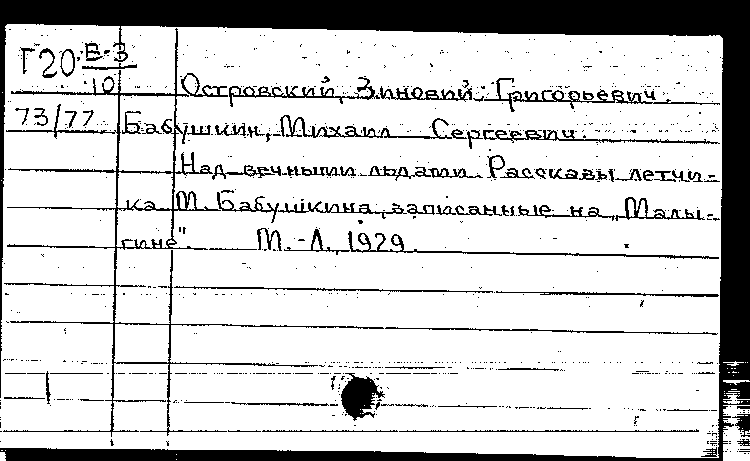 Г20 В-3
10
Островский, Зиновий Григорьевич.
73/77 Бабушкин, Михаил Сергеевич.
Над вечными льдами. Рассказы летчи-
ка М. Бабушкина, записанные на „Малы-
гине". М.-Л., 1929.